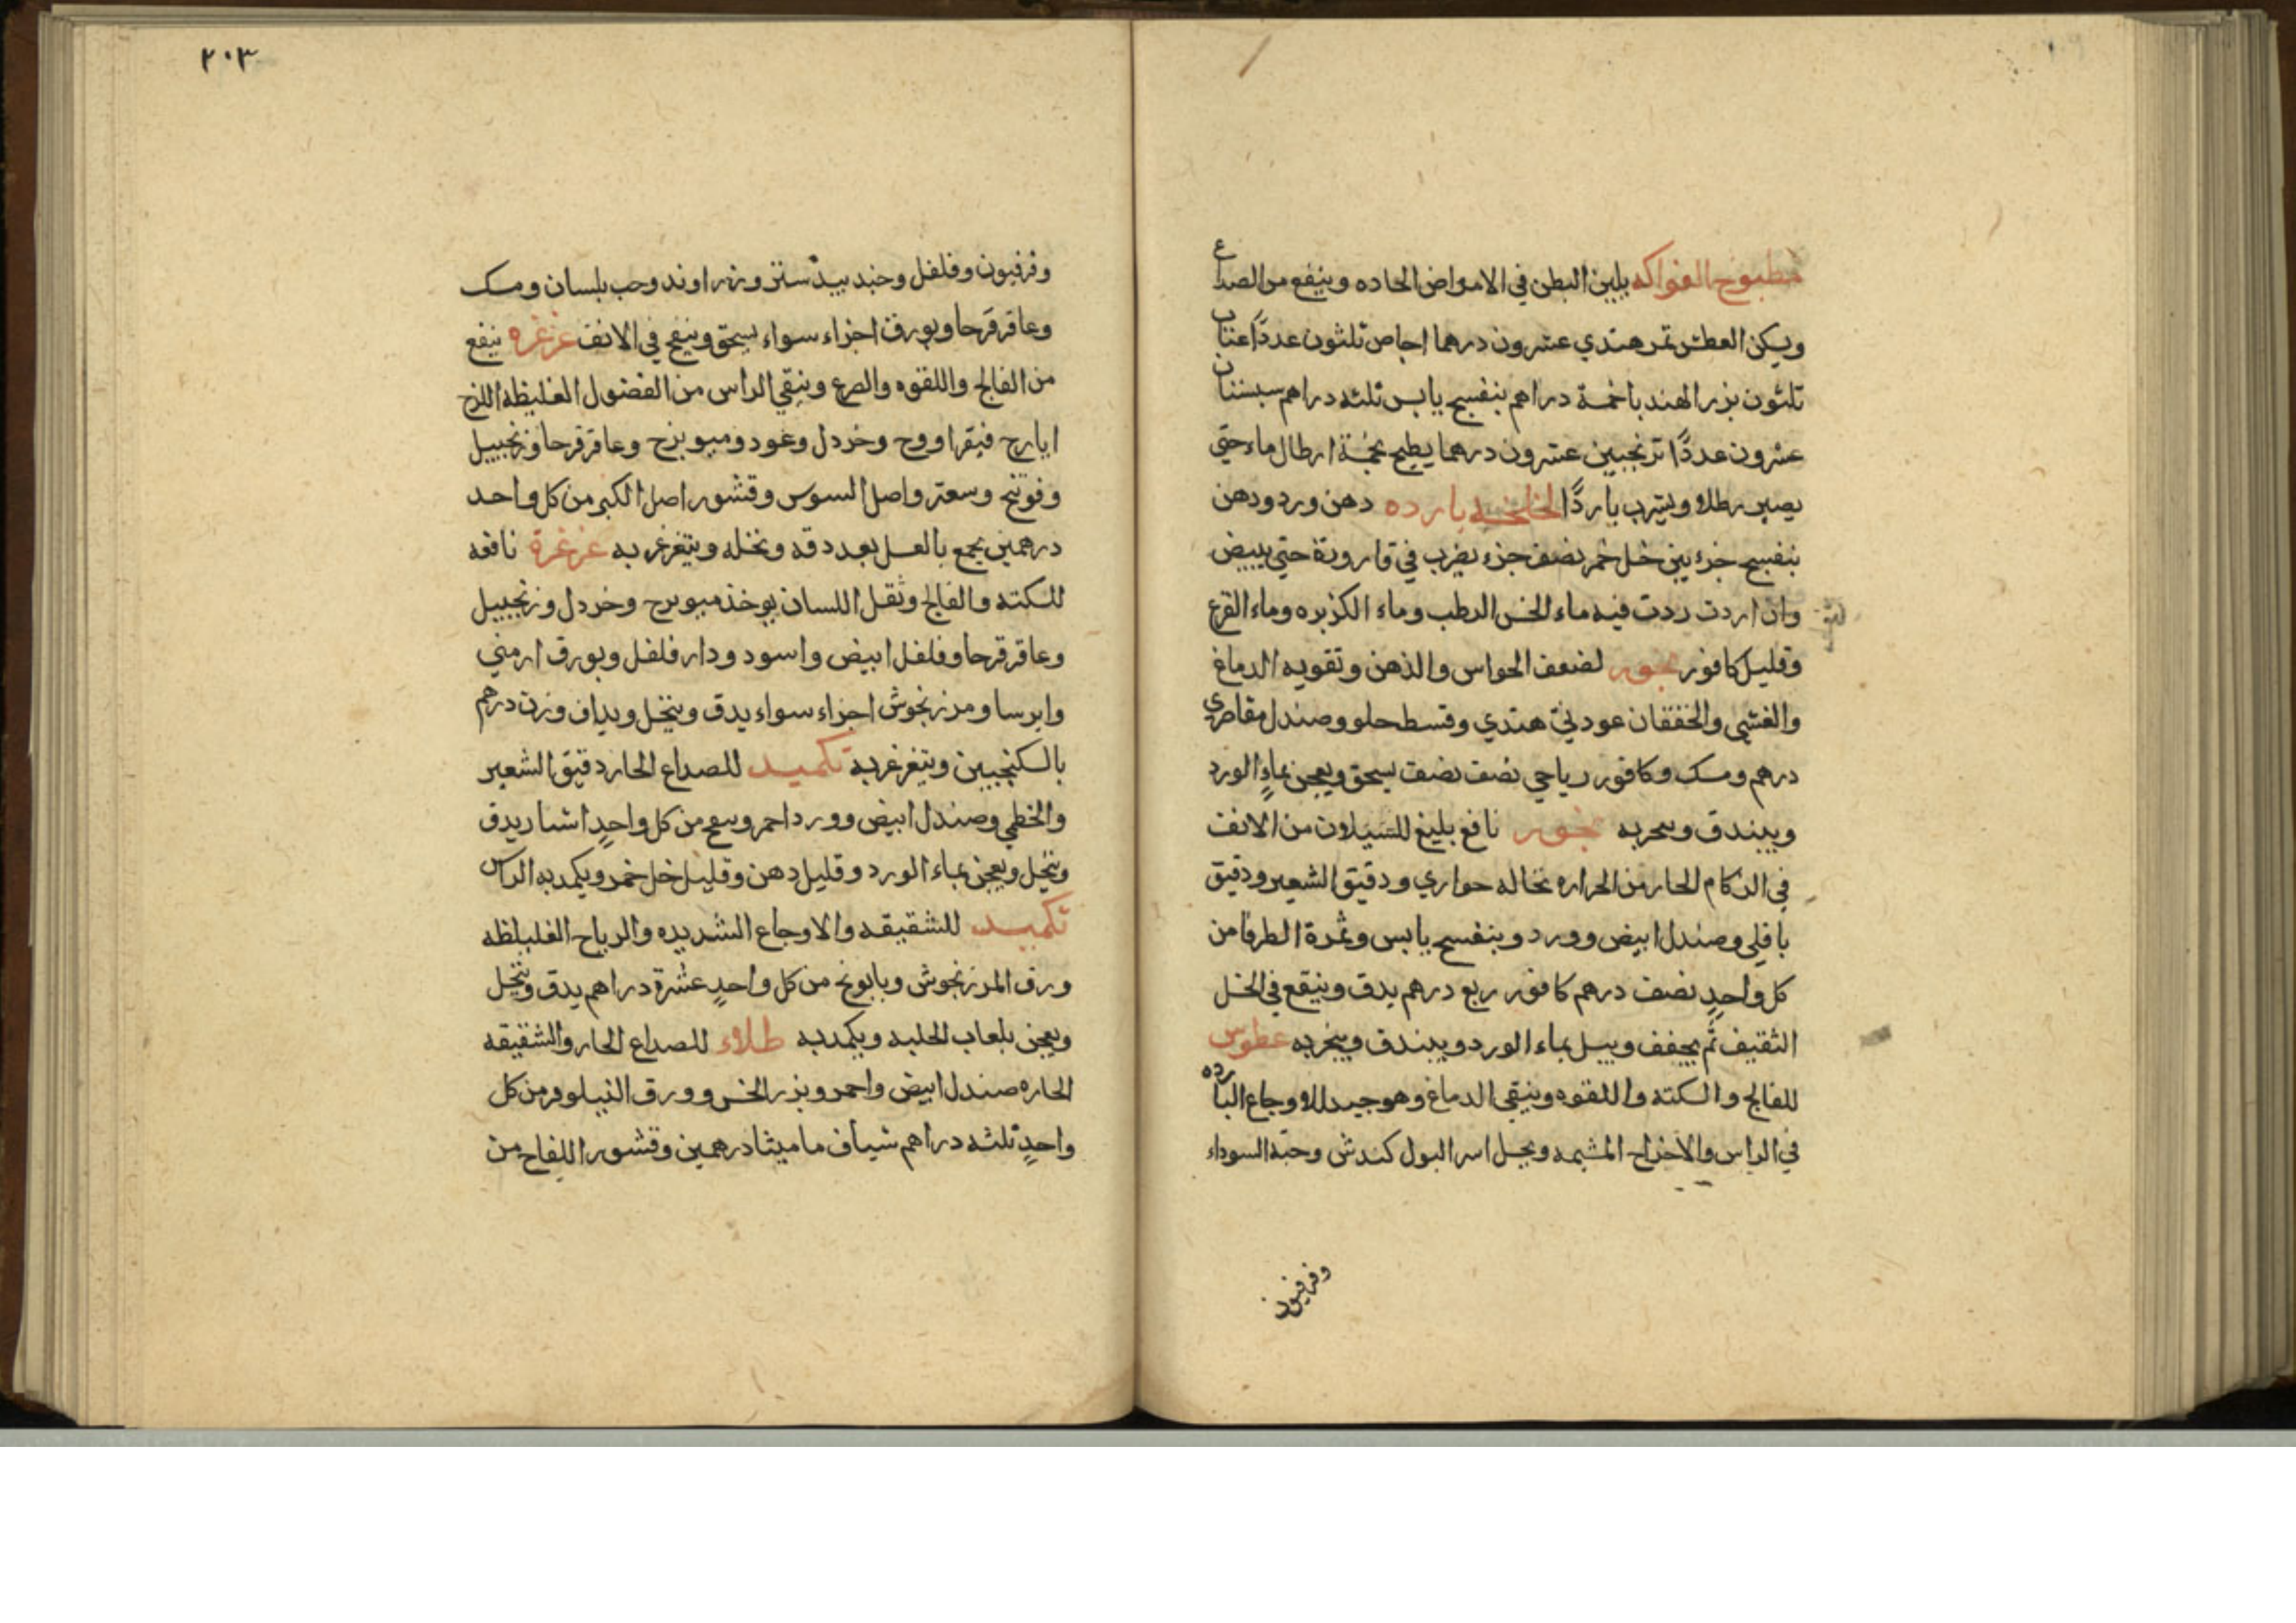 مطبوخ الفواكه يلين البطن في الامراض الحاده وينفع من الصداع
ويسكن العطش تمر هندي عشرون درهما اجاص ثلثون عددًا عناب
ثلثون بزر الهندبا خمسة دراهم بنفسج يابس ثلثه دراهم سبستان
عشرون عددًا ترنجبين عشرون درهما يطبخ بخمسة ارطال ماء حتي
يصير رطلا ويشرب باردًا لخلخه بارده دهن ورد ودهن
بنفسج جزءين خل خمر نصف جزء يضرب في قارورة حتي يبيض
وان اردت زدت فيه ماء الخس الرطب وماء الكزبره وماء القرع
وقليل كافور بخور لضعف الحواس والذهن وتقويه الدماغ
والغشي والخفقان عود ني هندي وقسط حلو وصندل مقاصري
درهم ومسك وكافور رياحي نصف نصف يسحق ويعجن بماءِ الورد
ويبندق وسحر به بخور نافع بليغ للسيلان من الانف
في الزكام الحار من الحراره نخاله حواري ودقيق الشعير ودقيق
باقلي وصندل ابيض وورد وبنفسج يابس وثمرة الطرفا من
كل واحدٍ نصف درهم كافور ربع درهم يدق وينقع في الخل
الثقيف ثم يجفف ويبل بماء الورد ويبندق ويبخر به عطوس
للفالج والسكته واللقوه وينقي الدماغ وهو جيد للاوجاع البارده
في الراس والاخراج المشيمه ويحل اسر البول كندش وحبة السوداء
وفرفيون
٢٠٣
وفرفيون وفلفل وجندبيدستر وزراوند وحب بلسان ومسك
وعاقرقرحا وبورق اجزاء سواء يسحق وينفخ في الانف غرغره ينفع
من الفالج واللقوه والصرع وينقي الراس من الفضول الغليظه اللزج
ايارج فيقرا ووج وخردل وعود وميوبزج وعاقرقرحا وزنجبيل
وفوتنج وسعتر واصل السوس وقشور اصل الكبر من كل واحد
درهمين يجمع بالعسل بعد دقه ونخله ويتغرغر به غرغرة نافعه
للسكته والفالج وثقل اللسان يوخذ ميوبزج وخردل وزنجبيل
وعاقرقرحا وفلفل ابيض واسود ودارفلفل وبورق ارمني
وايرسا ومرزنجوش اجزاء سواء يدق وينخل ويداف وزن درهم
بالسكنجبين ويتغرغر به تكميد للصداع الحار دقيق الشعير
والخطمي وصندل ابيض وورد احمر من كل واحدٍ يدق
وينخل ويعجن بماء الورد وقليل دهن وقليل خل خمر ويكمد به الراس
تكميد للشقيقه والاوجاع الشديده والرياح الغليظه
ورق المرزنجوش وبابونج من كل واحدٍ عشرة دراهم يدق وينخل
ويعجن بلعاب الحلبه ويكمد به طلاء للصداع الحار والشقيقه
الحاره صندل ابيض واحمر وبزر الخس وورق النيلوفر من كل
واحدٍ ثلثه دراهم شياف ماميثا درهمين وقشور اللفاح من